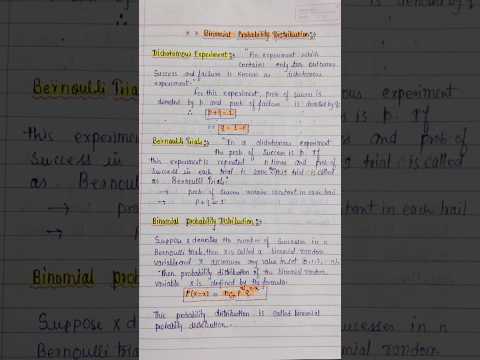 x x Binomial Probability Distribution :-
Dichotomous Experiment :- "An experiment which
contains only two outcomes
Success and failure is known as "dichotomous
experiment."
For this experiment, prob of success is
denoted by p and prob of failure is denoted by q
∴ p+q=1
q = 1-p
Bernoulli Trials :- "In a dichotomous experiment
the prob of Success is p. If
this experiment is repeated n times and prob of
Success in each trial is same this trial is called
as Bernoulli Trials"
→ prob of success remains constant in each trail
→ p+q=1
Binomial probability Distribution :-
Suppose x denotes the number of successes in n
Bernoulli trials, then x is called a binomial random
variable and
"Then probability distribution of the binomial random
variable x is defined by the formula:
This probability distribution is called binomial
probability distribution.